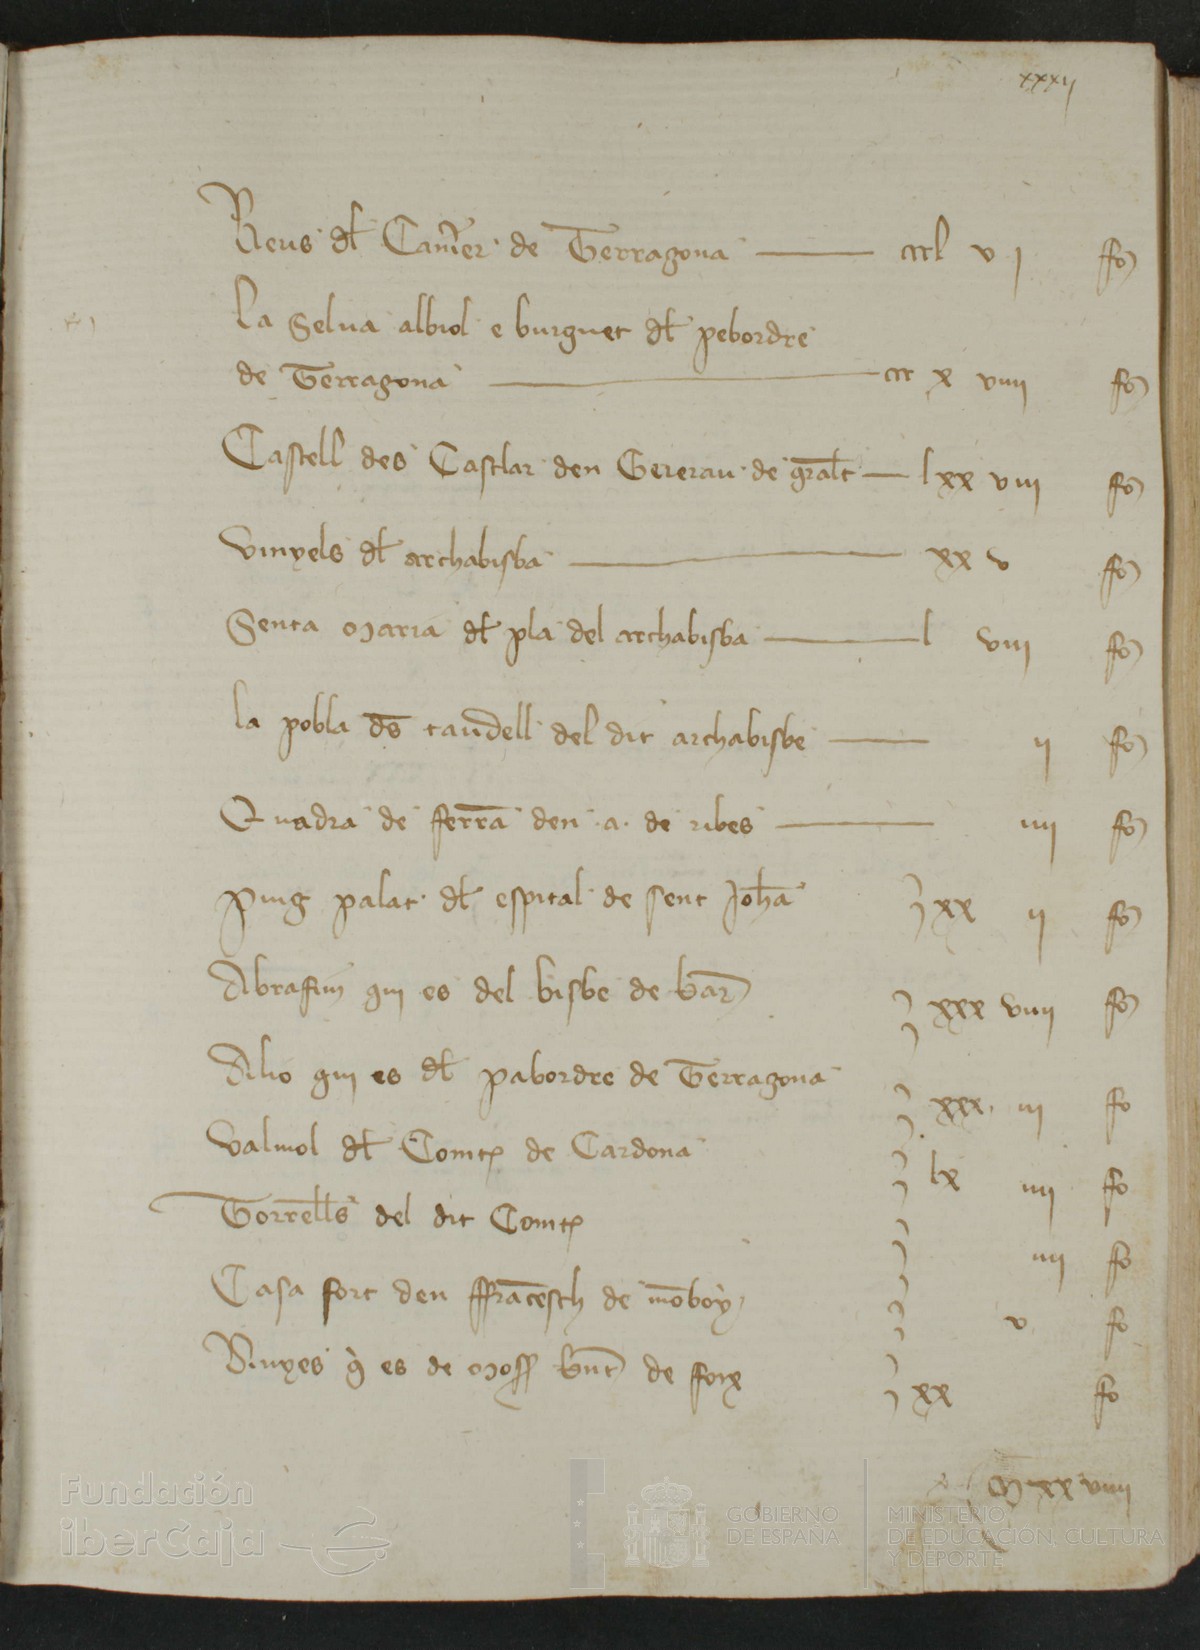 xxxij
Reus dl Camer de Terragona cccl v j ffo
La Selua albiol e burguet dl pebordre
de Terragona ccc x viiij fo
Castell des Castlar den Gererau de gralt lxx viij fo
Vinyels dl archabisba xx v fo
Senta Maria dl pla del archabisba l viij fo
la pobla ds taudell del dit archabisbe ij fo
Quadra de ferra den .a. de ribes iiij fo
Puig palat dl espital de sent Joha xx ij fo
Abrafim qui es del bisbe de bar xxx viiij fo
Alio qui es dl pabordre de Terragona xxx iij fo
Valmol dl Comte de Cardona lx iiij fo
Torrells del dit Comte iiij fo
Casa fort den ffracesch de moboy v fo
Vinyes q es de Moss de xx fo
M xx viiij
Fundación
iberCaja
GOBIERNO
DE ESPAÑA
MINISTERIO
DE EDUCACIÓN, CULTURA
Y DEPORTE